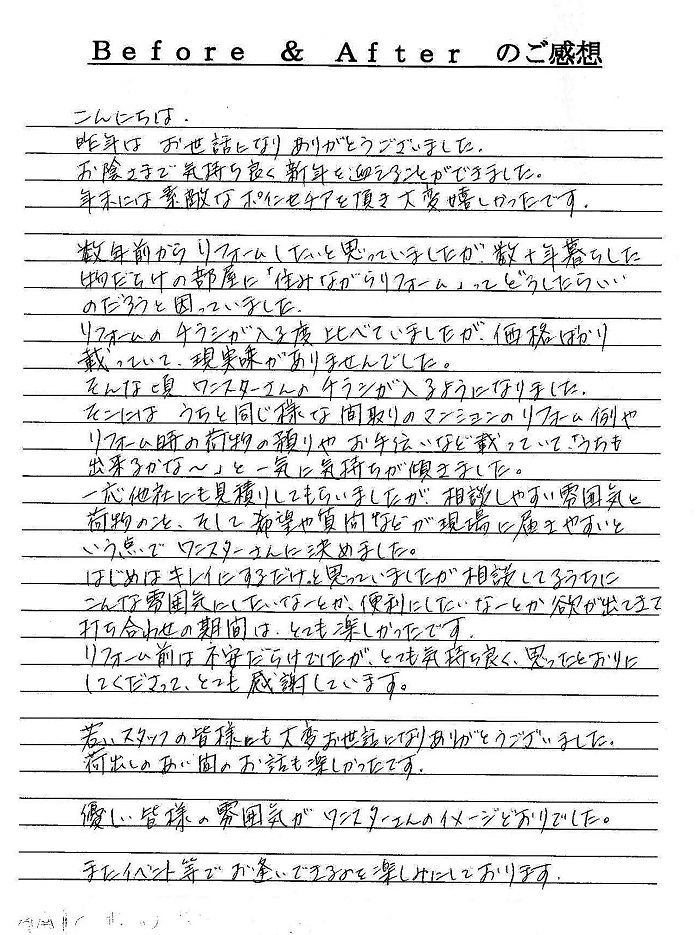 Before & After のご感想
こんにちは.
昨年は お世話になり ありがとうございました.
お陰さまで気持ち良く新年を迎えることができました。
年末には素敵なポインセチアを頂き大変嬉しかったです.
数年前からリフォームしたいと思っていましたが、数十年暮らした
物だらけの部屋に「住みながらリフォーム」ってどうしたらいい
のだろうと困っていました.
リフォームのチラシが入る度比べていましたが、価格ばかり
載っていて、現実味がありませんでした。
そんな頃 ワンスターさんのチラシが入るようになりました.
そこには うちと同じ様な間取りのマンションのリフォーム例や
リフォーム時の荷物の預りや お手伝いなど載っていて、「うちも
出来るかな〜」と一気に気持ちが傾きました。
一応他社にも見積りしてもらいましたが、相談しやすい雰囲気と
荷物のこと、そして希望や質問などが現場に届きやすいと
いう点でワンスターさんに決めました。
はじめはキレイにするだけ。と思っていましたが相談してるうちに
こんな雰囲気にしたいなーとか、便利にしたいなーとか欲が出てきて
打ち合わせの期間は、とても楽しかったです.
リフォーム前は不安だらけでしたが、とても気持ち良く、思ったとおりに
してくださって、とても感謝しています。
若いスタッフの皆様にも大変お世話になりありがとうございました.
荷出しのあい間のお話も楽しかったです.
優しい皆様の雰囲気がワンスターさんのイメージどおりでした。
またイベント等でお逢いできるのを楽しみにしております.